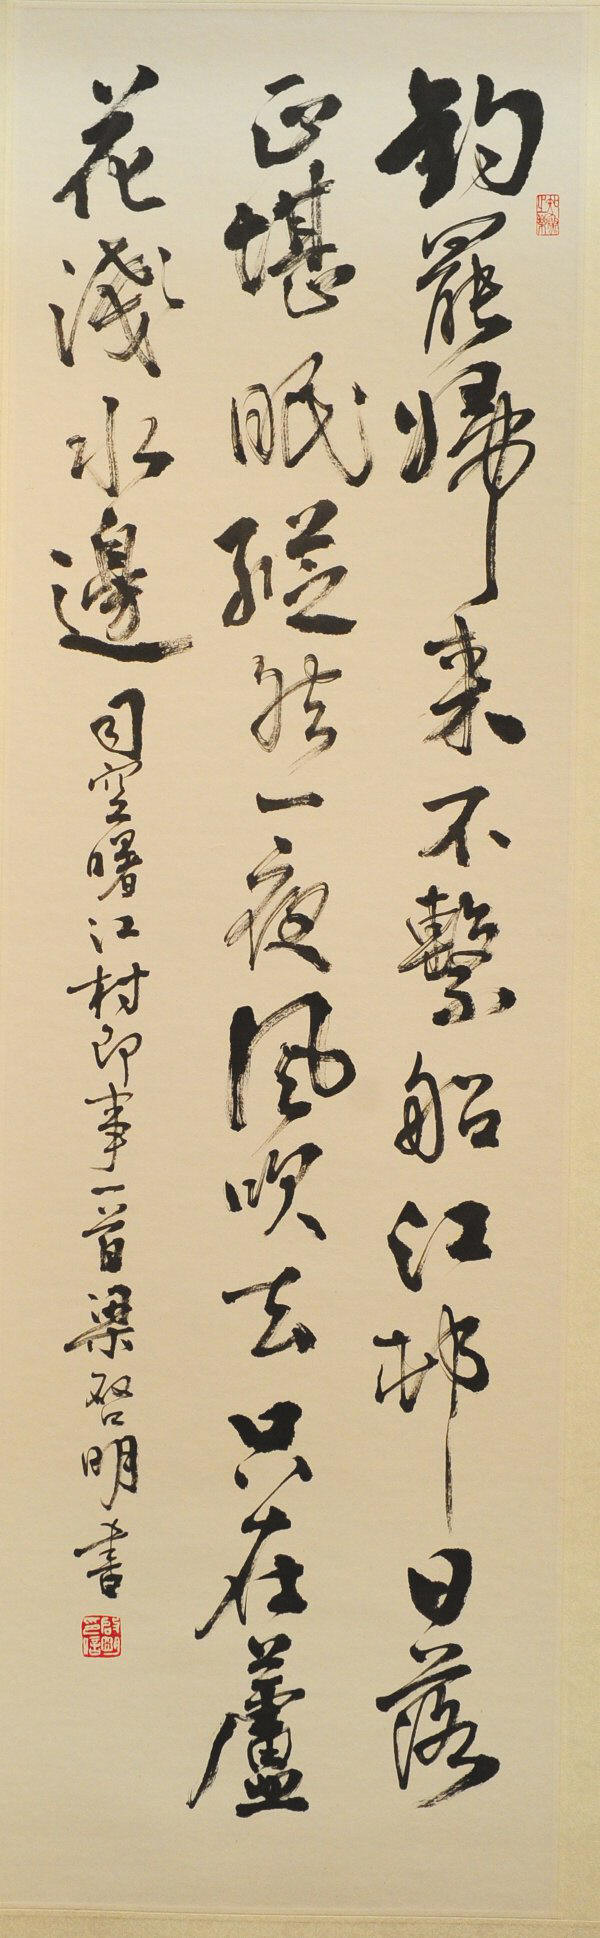 釣罷歸來不繫船江邨日落
正堪眠縱然一夜風吹去只在蘆
花淺水邊
司空曙江村即事一首梁啓明書